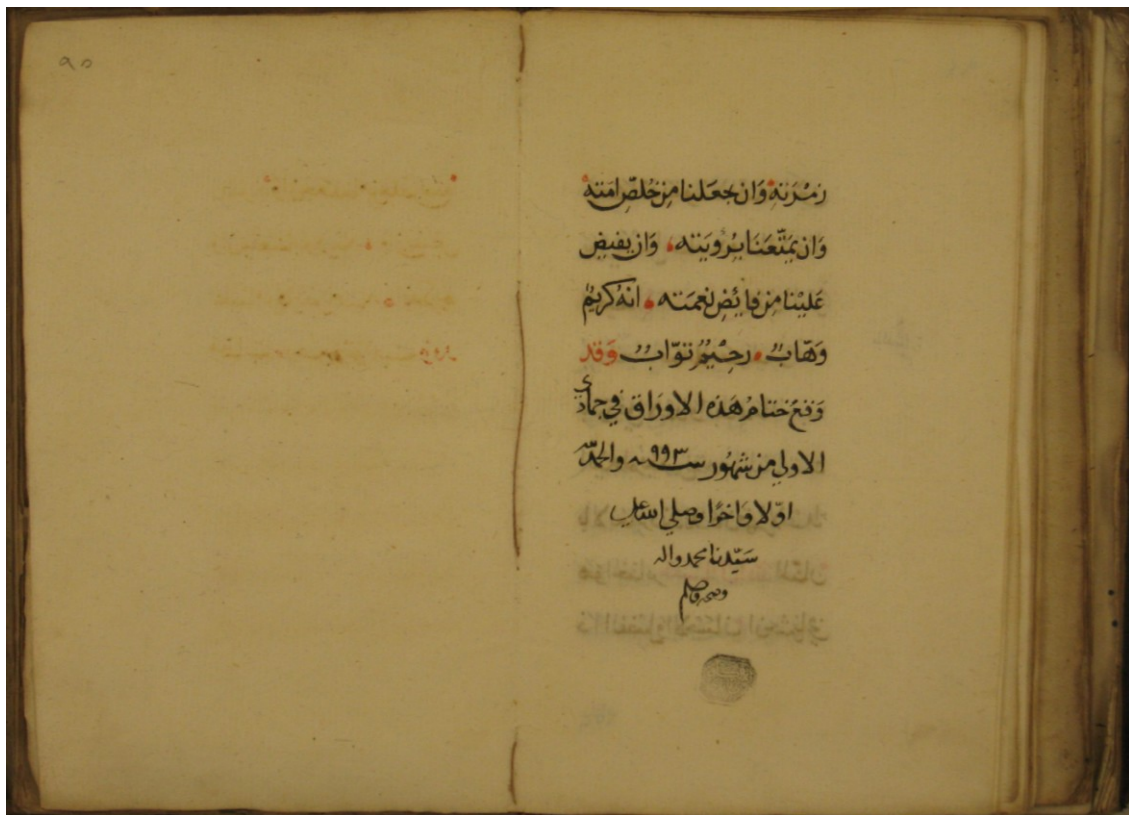 زمرته وان يجعلنا من خلص امته
وان يمتعنا برؤيته وان يفيض
علينا من فائض نعمته انه كريم
وهاب رحيم تواب وقد
وقع ختام هذه الاوراق في جمادى
الاولى من شهور سنة ٩٩٣ والحمد لله
اولا واخرا وصلى الله على
سيدنا محمد واله
وصحبه وسلم
٩٥